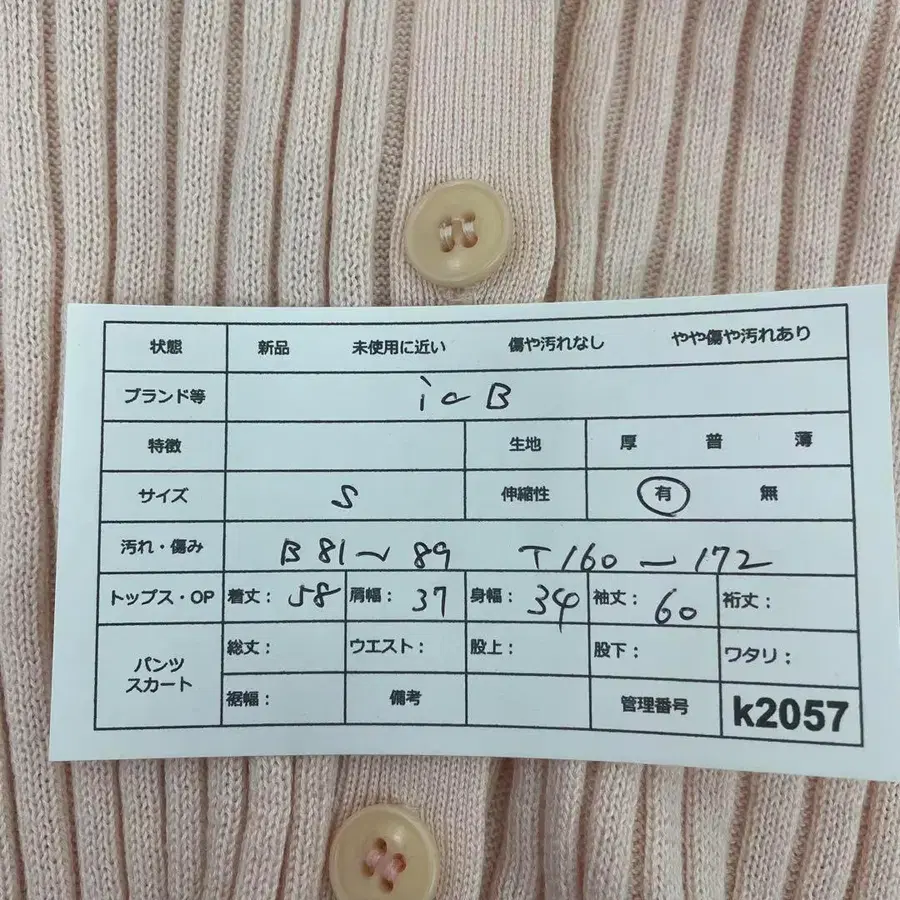 状態 新品 未使用に近い 傷や汚れなし やや傷や汚れあり
ブランド等 icB
特徴 生地 厚 普 薄
サイズ S 伸縮性 有 無
汚れ・傷み B 81~89 T 160~172
トップス・OP 着丈: 58 肩幅: 37 身幅: 34 袖丈: 60 裄丈:
パンツ スカート 総丈: ウエスト: 股上: 股下: ワタリ:
裾幅: 備考 管理番号 k2057